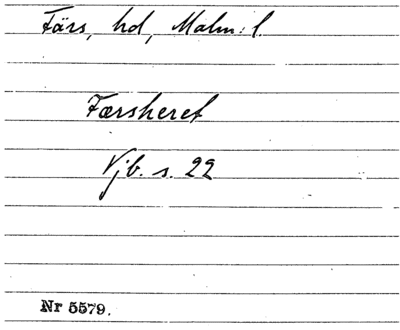 Färs, hd, Malm:l.
Færsheret
Vjb. s. 22
Nr 5579.